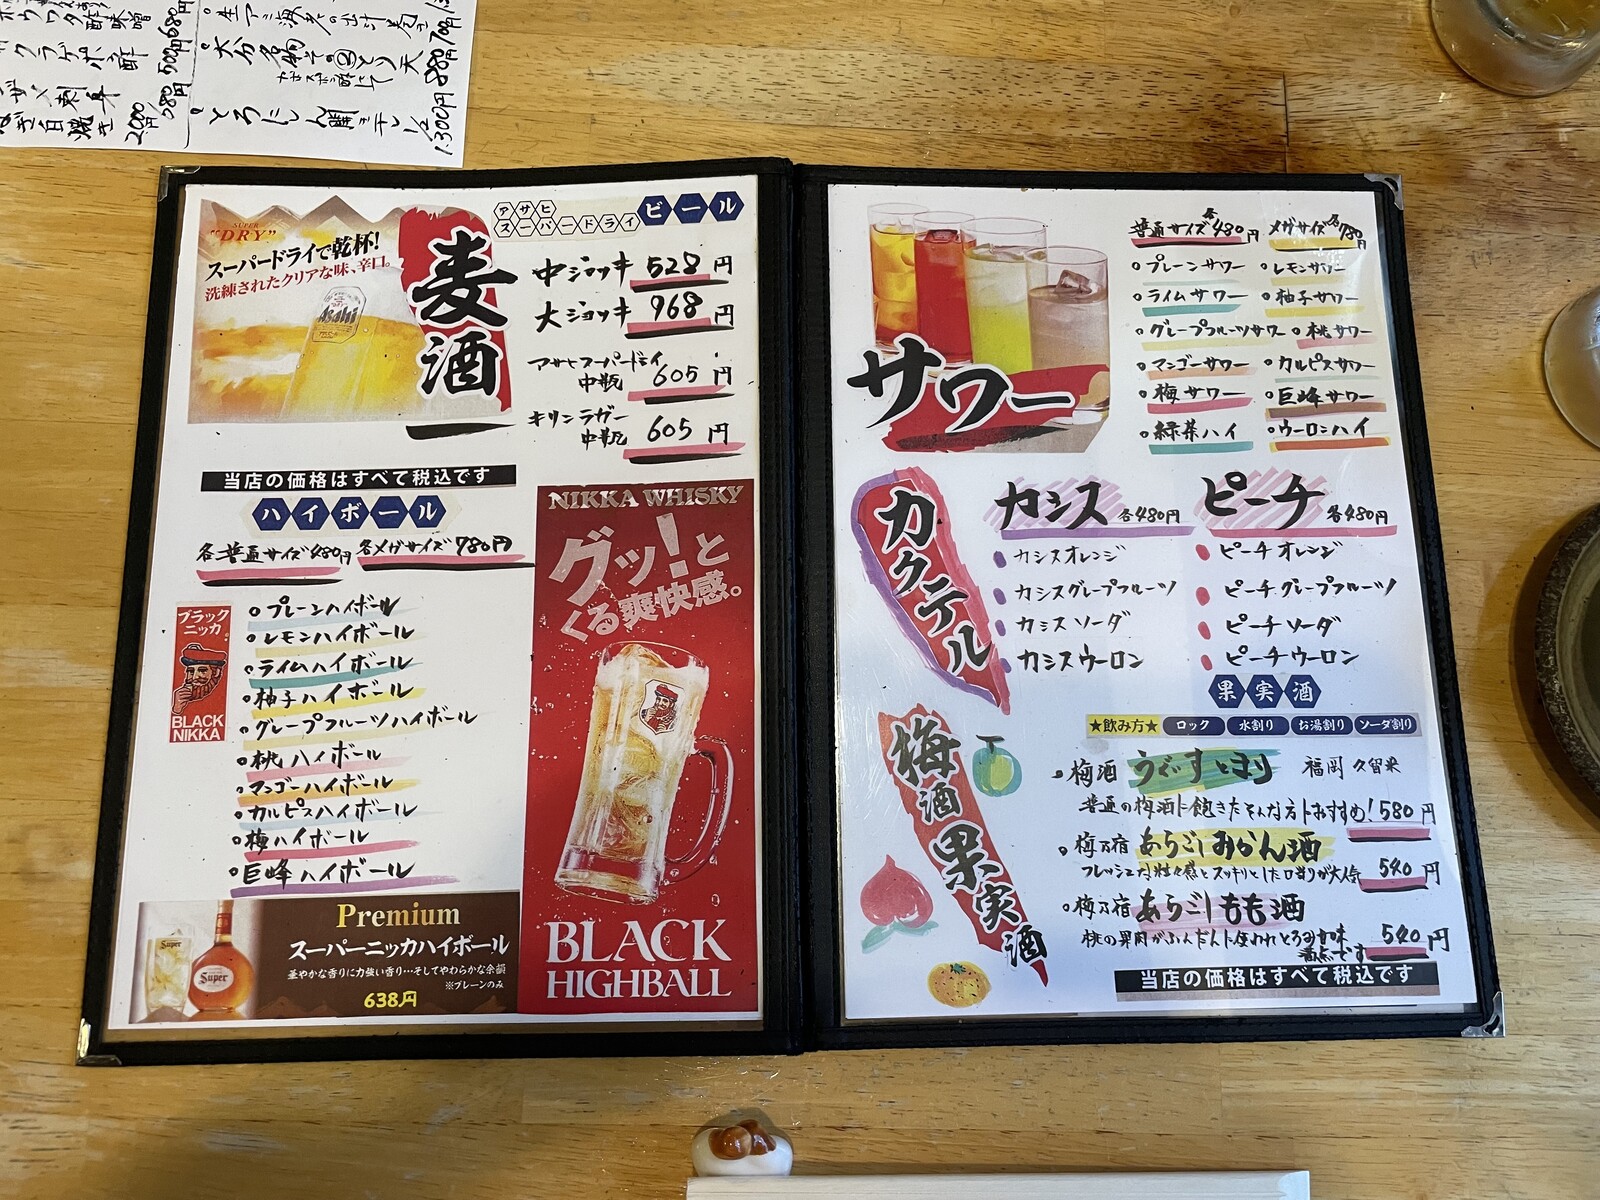 酢味噌
680円
クラゲポン酢
500円
刺身
白焼き
2,000円
大分名物 とり天
880円
1,300円
SUPER
"DRY"
スーパードライで乾杯!
洗練されたクリアな味、辛口。
Asahi
麦酒
アサヒ
スーパードライ
ビール
中ジョッキ 528円
大ジョッキ 968円
アサヒスーパードライ
中瓶 605円
キリンラガー
中瓶 605円
当店の価格はすべて税込です
ハイボール
各普通サイズ480円 各メガサイズ780円
ブラック
ニッカ
BLACK
NIKKA
プレーンハイボール
レモンハイボール
ライムハイボール
柚子ハイボール
グレープフルーツハイボール
桃ハイボール
マンゴーハイボール
カルピスハイボール
梅ハイボール
巨峰ハイボール
Super
Super
Premium
スーパーニッカハイボール
華やかな香りに力強い香り…そしてやわらかな余韻
※プレーンのみ
638円
NIKKA WHISKY
グッ!と
くる爽快感。
BLACK
HIGHBALL
サワー
普通サイズ各480円 メガサイズ各780円
プレーンサワー レモンサワー
ライムサワー 柚子サワー
グレープフルーツサワー 桃サワー
マンゴーサワー カルピスサワー
梅サワー 巨峰サワー
緑茶ハイ ウーロンハイ
カクテル
カシス 各480円
カシスオレンジ
カシスグレープフルーツ
カシスソーダ
カシスウーロン
ピーチ 各480円
ピーチオレンジ
ピーチグレープフルーツ
ピーチソーダ
ピーチウーロン
果実酒
★飲み方★ ロック 水割り お湯割り ソーダ割り
梅酒果実酒
梅酒 うぐいすとまり 福岡 久留米
普通の梅酒に飽きたそんな方におすすめ! 580円
梅乃宿 あらごしみかん酒
フレッシュな粒々感とスッキリとした口当りが人気 540円
梅乃宿 あらごしもも酒
桃の果肉がふんだんに使われとろみか味
満点です 540円
当店の価格はすべて税込です